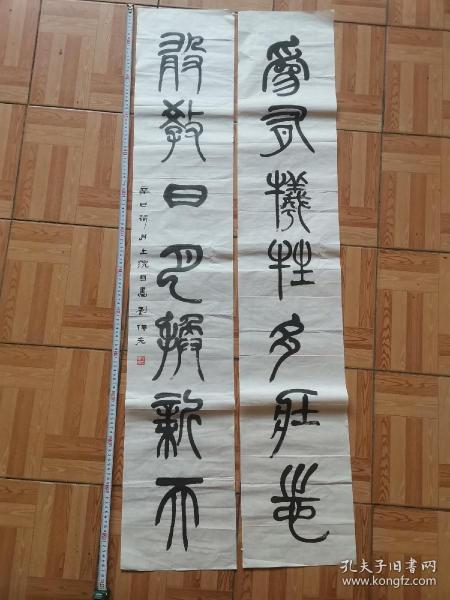 為有犧牲多壯志
敢教日月換新天
辛巳荷月上浣
孔夫子旧书网
www.kongfz.com